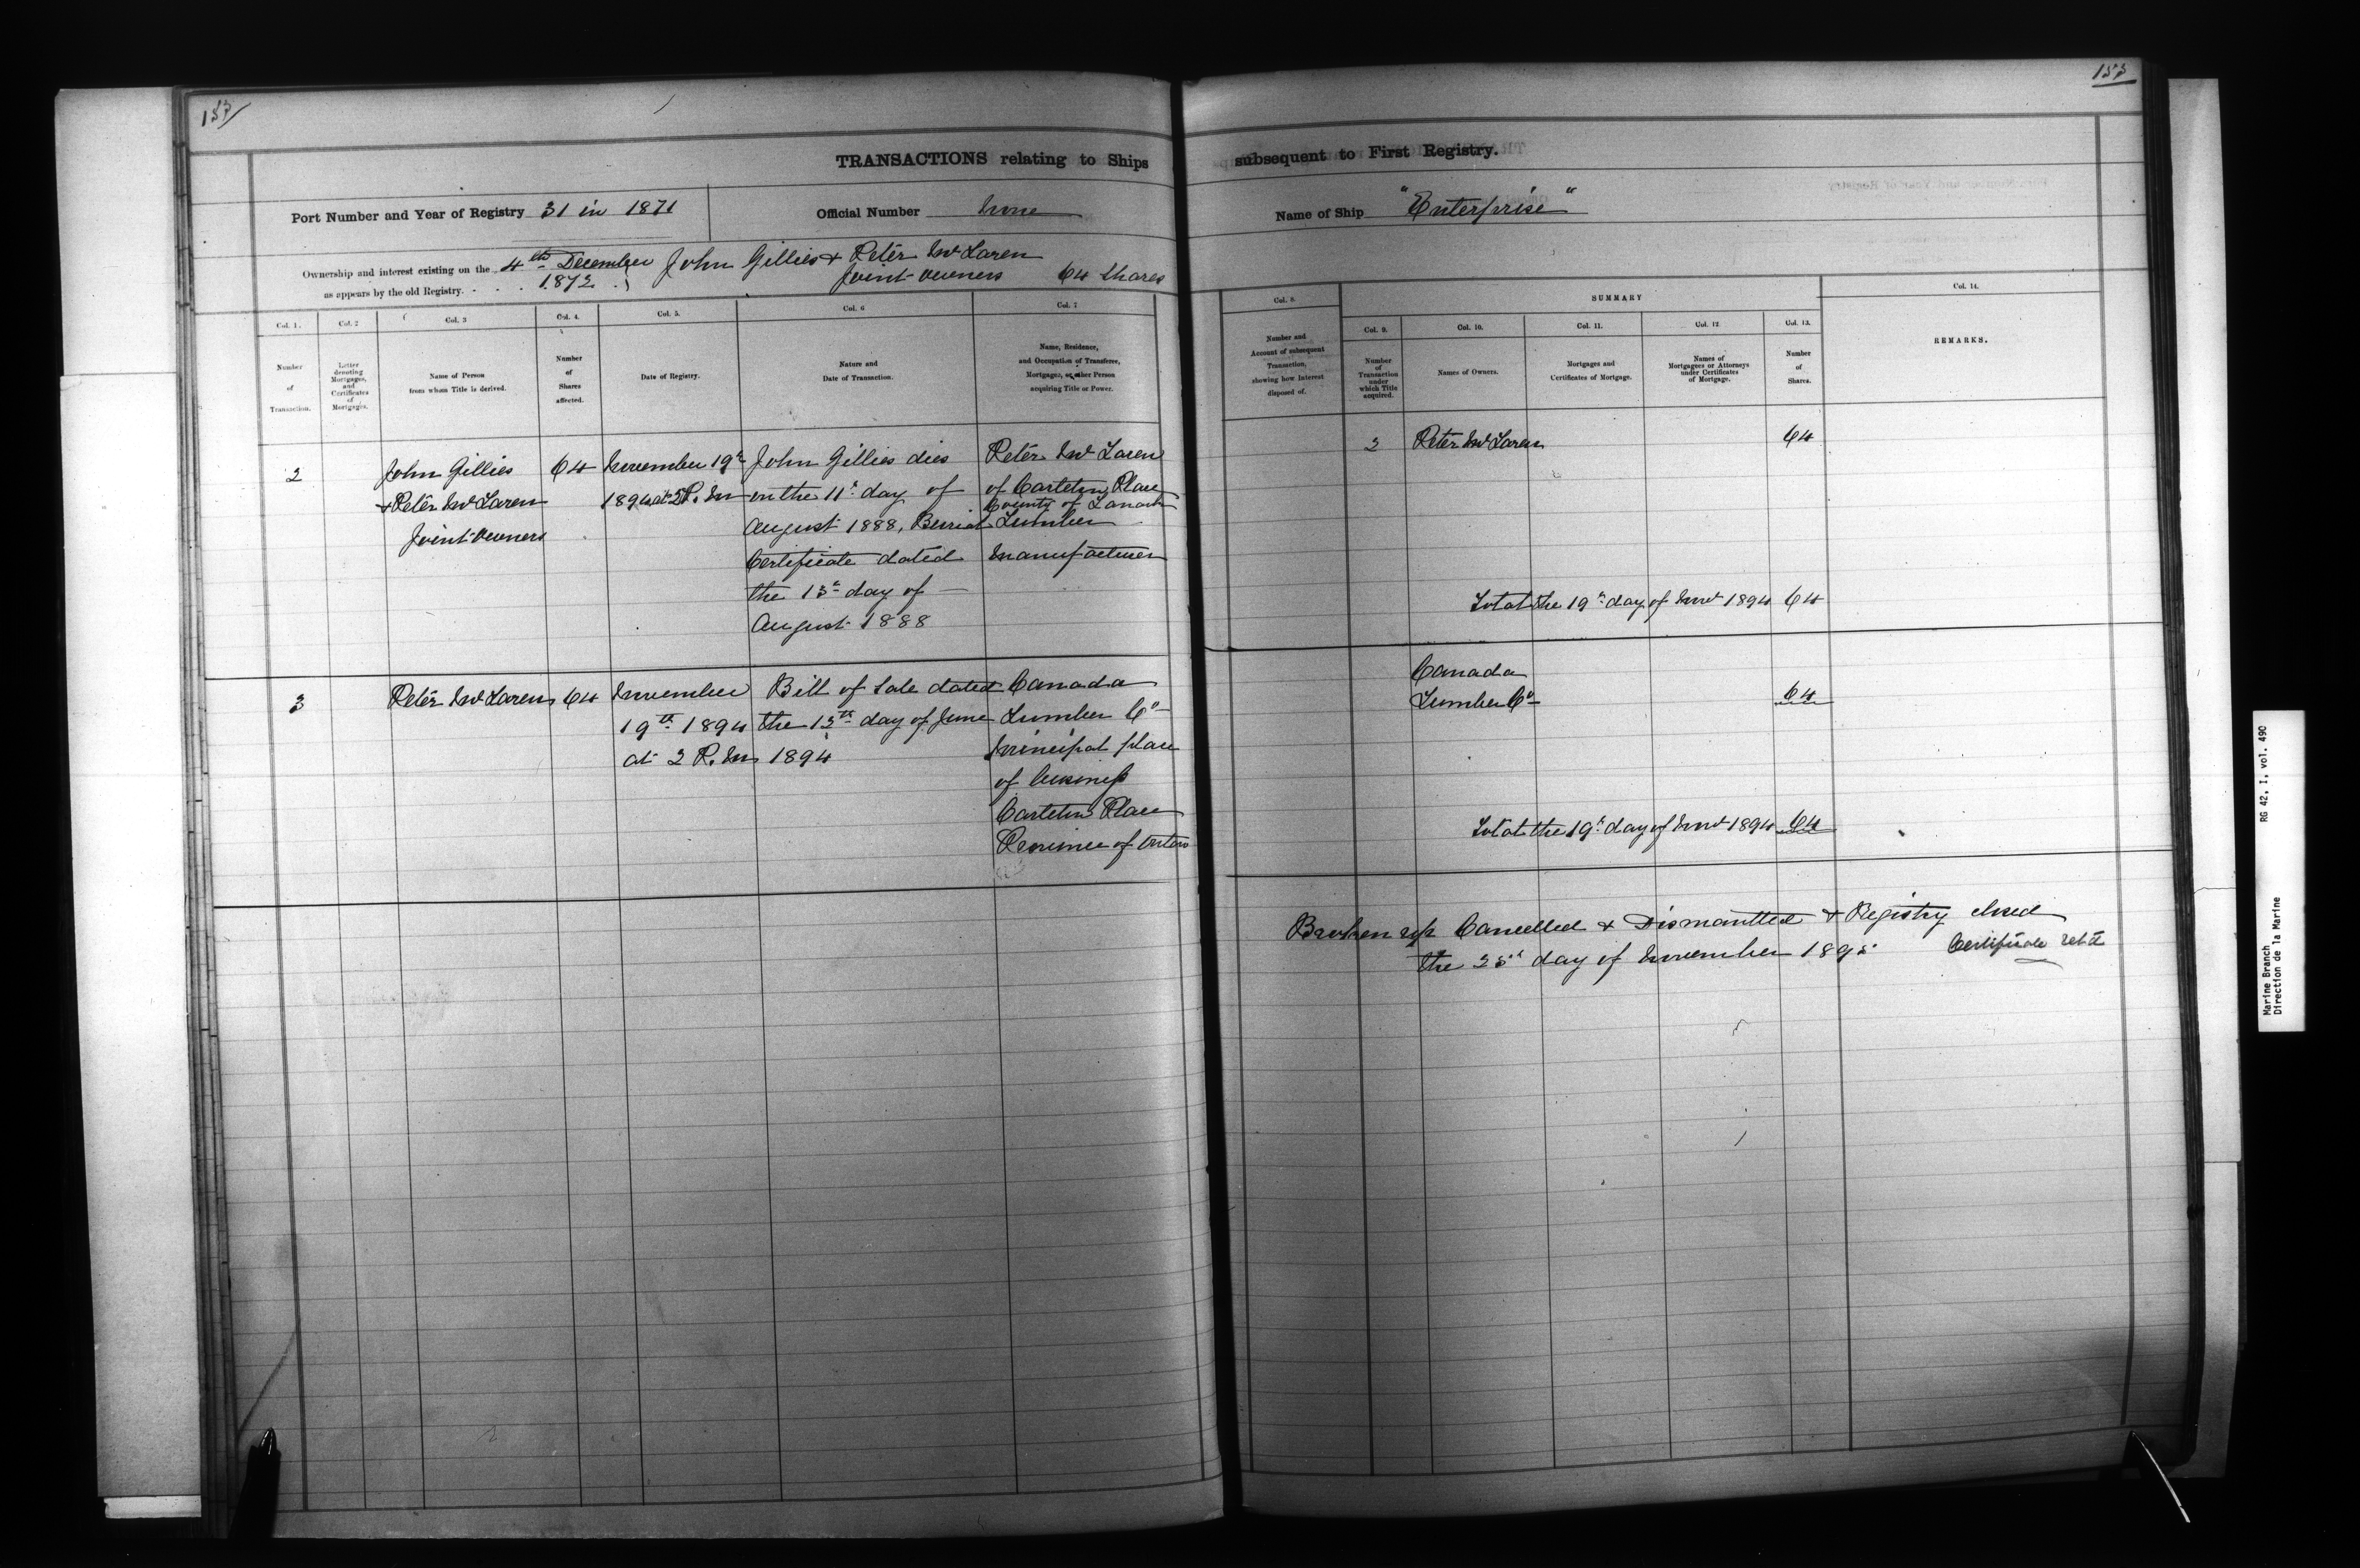 153
TRANSACTIONS relating to Ships
Port Number and Year of Registry 31 in 1871
Official Number None
Ownership and interest existing on the 4th December
1872
as appears by the old Registry.
John Gillies & Peter McLaren
Joint Owners 64 Shares
Col. 1.
Col. 2
Col. 3
Col. 4.
Col. 5.
Col. 6
Col. 7
Number
of
Transaction.
Letter
denoting
Mortgages,
and
Certificates
of
Mortgages.
Name of Person
from whom Title is derived.
Number
of
Shares
affected.
Date of Registry.
Nature and
Date of Transaction.
Name, Residence,
and Occupation of Transferee,
Mortgagee, or other Person
acquiring Title or Power.
2
John Gillies
& Peter McLaren
Joint Owners
64
November 19th
1894 at 2 P.M
John Gillies dies
on the 11th day of
August 1888, Burial
Certificate dated
the 13th day of
August 1888
Peter McLaren
of Carleton Place
County of Lanark
Lumber
Manufacturer
3
Peter McLaren
64
November
19th 1894
at 2 P.M
Bill of Sale dated
the 13th day of June
1894
Canada
Lumber Co
Principal place
of business
Carleton Place
Province of Ontario
153
subsequent to First Registry.
Name of Ship "Enterprise"
Col. 8.
SUMMARY
Col. 14.
Col. 9.
Col. 10.
Col. 11.
Col. 12
Col. 13.
Number and
Account of subsequent
Transaction,
showing how Interest
disposed of.
Number
of
Transaction
under
which Title
acquired.
Names of Owners.
Mortgages and
Certificates of Mortgage.
Names of
Mortgagees or Attorneys
under Certificates
of Mortgage.
Number
of
Shares.
REMARKS.
2 Peter McLaren 64
Total the 19th day of Novr 1894 64
Canada
Lumber Co 64
Total the 19th day of Novr 1894 64
Broken up Cancelled & Dismantled & Registry closed
the 25th day of November 1895 Certificate retd
RG 42, I, vol. 490
Marine Branch
Direction de la Marine